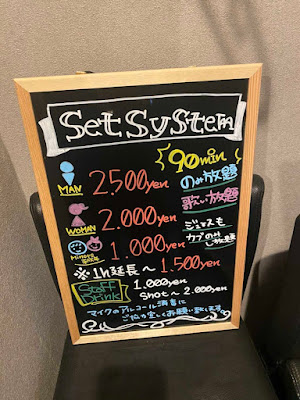 Set System
90min
MAN 2500yen のみ放題
WOMAN 2.000yen 歌い放題
1.000yen ジュースも
放題
※1h延長〜1.500yen
Staff Drink 1.000yen
shot〜2.000yen
マイクのアルコール消毒に
ご協力宜しくお願い致します